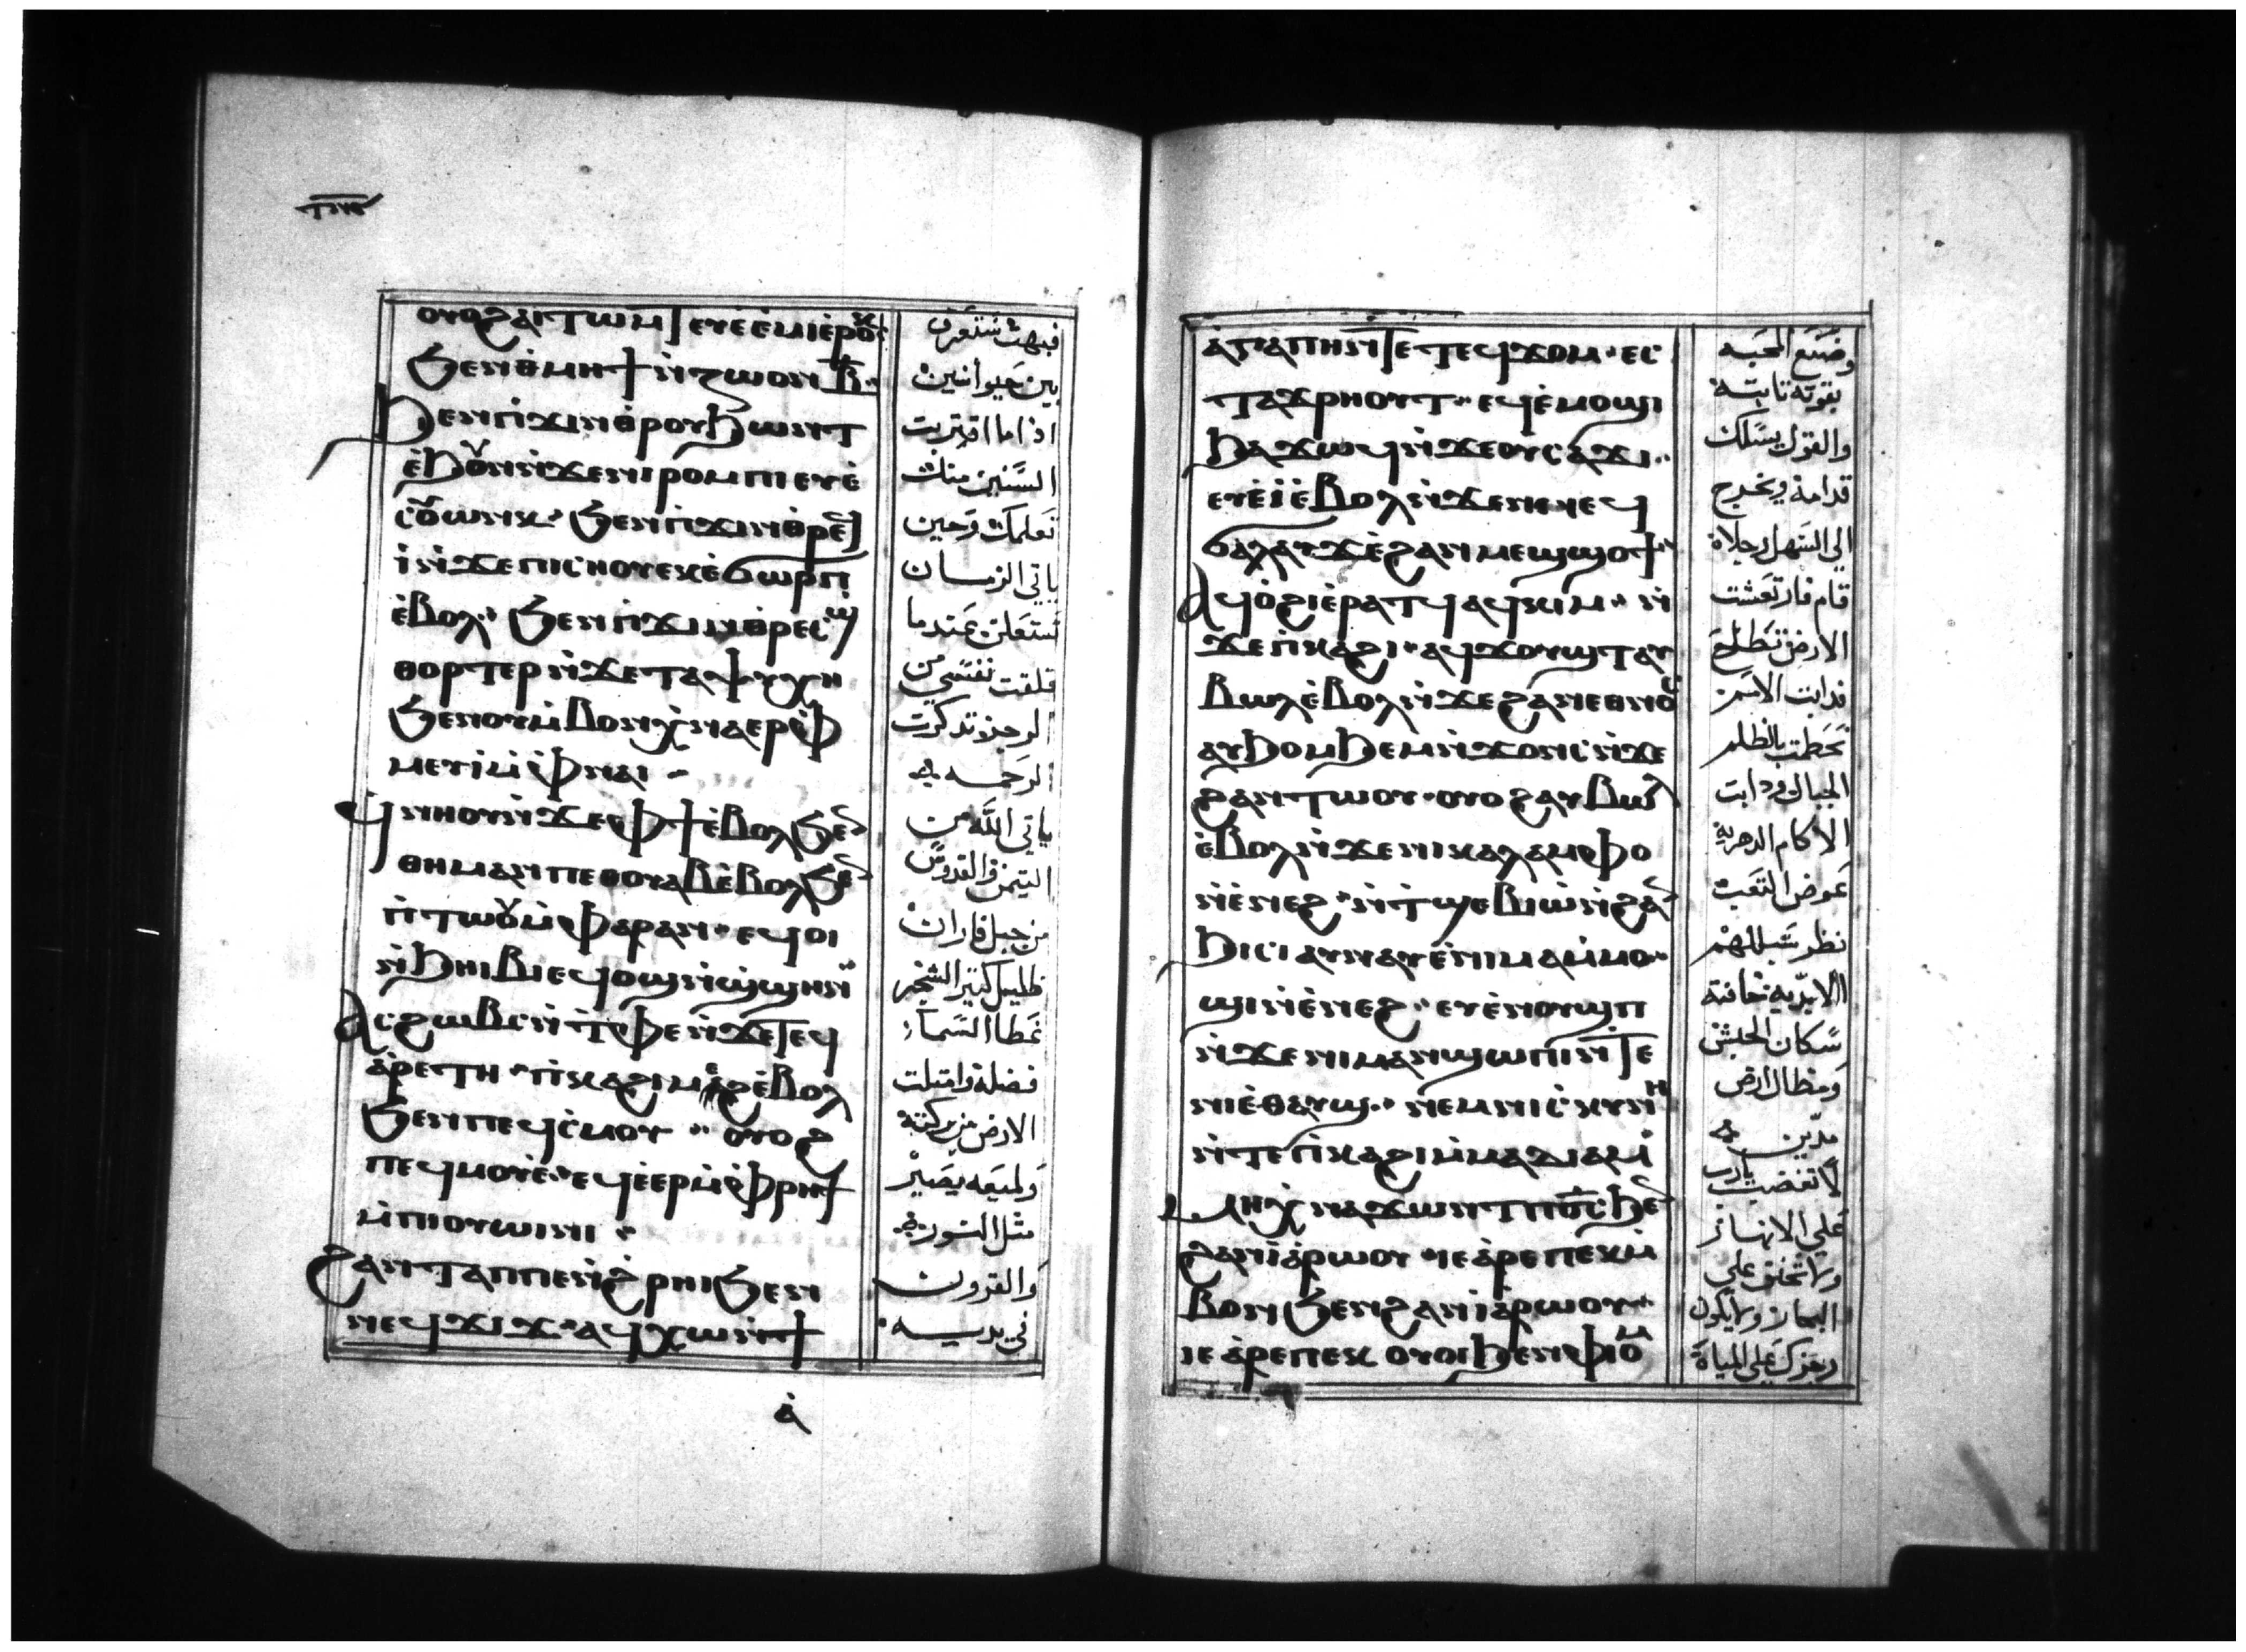 ⲟⲩⲟϩ ⲁⲓⲧⲱⲙⲧ ⲉⲩⲉ̀ⲉ̀ⲙⲓ ⲉ̀ⲣⲟⲕ
ϧⲉⲛ ⲑⲙⲏϯ ⲛ̀ⲍⲱⲟⲛ ⲃ̅
ϧⲉⲛ ⲡ̀ϫⲓⲛⲑⲣⲟⲩϧⲱⲛⲧ
ⲉ̀ϧⲟⲩⲛ ⲛ̀ϫⲉ ⲛⲓⲣⲟⲙⲡⲓ ⲉⲩⲉ̀
ⲥⲟⲩⲱⲛⲕ ϧⲉⲛ ⲡ̀ϫⲓⲛⲑⲣⲉϥ
ⲓ̀ ⲛ̀ϫⲉ ⲡⲓⲥⲛⲟⲩ ⲉⲕⲉ̀ϭⲱⲣⲡ
ⲉ̀ⲃⲟⲗ ϧⲉⲛ ⲡ̀ϫⲓⲛⲑⲣⲉⲥϣ
ⲑⲟⲣⲧⲉⲣ ⲛ̀ϫⲉ ⲧⲁⲯⲩⲭⲏ
ϧⲉⲛ ⲟⲩⲙ̀ⲃⲟⲛ ⲭ̀ⲛⲁⲉⲣⲫ
ⲙⲉⲩⲓ̀ ⲙ̀ⲫⲛⲁⲓ
ϥ̀ⲛⲏⲟⲩ ⲛ̀ϫⲉ ⲫϯ ⲉ̀ⲃⲟⲗϧⲉⲛ
ⲑⲏⲙⲁⲛ ⲡⲉⲑⲟⲩⲁⲃ ⲉ̀ⲃⲟⲗϧⲉⲛ
ⲡ̀ⲧⲱⲟⲩ ⲙ̀ⲫⲁⲣⲁⲛ ⲉϥⲟⲓ
ⲛ̀ϧⲏⲓⲃⲓ ⲉϥⲟϣ ⲛ̀ϣ̀ϣⲏⲛ
ⲁⲥϩⲱⲃⲥ ⲛ̀ⲧ̀ⲫⲉ ⲛ̀ϫⲉ ⲧⲉϥ
ⲁ̀ⲣⲉⲧⲏ ⲡ̀ⲕⲁϩⲓ ⲙⲉϩ ⲉ̀ⲃⲟⲗ
ϧⲉⲛ ⲡⲉϥⲥ̀ⲙⲟⲩ ⲟⲩⲟϩ
ⲡⲉϥⲙⲟⲩⲉ̀ ⲉϥⲉ̀ⲉⲣⲙ̀ⲫⲣⲏϯ
ⲙ̀ⲡⲓⲟⲩⲱⲓⲛⲓ
ϩⲁⲛⲧⲁⲡ ⲡⲉⲛ̀ϩ̀ⲣⲏⲓ ϧⲉⲛ
ⲛⲉϥϫⲓϫ ⲁϥⲭⲱ ⲛ̀ϯ
ⲁ̀
فبهت ستعرف
بين حيوانين
اذا ما اقتربت
السنين منك
تعلمك وحين
ياتي الزمان
تستعلن عندما
قلقت نفسي من
الرجز تذكرت
الرحمه
ياتي الله من
التيمن والقدوس
من جبل فاران
ظليل كثير الشجر
غطا السماء
فضله وامتلت
الارض من بركته
ولميعه يصير
مثل النور
والقرون
في يديه
ⲁ̀ⲅⲁⲡⲏ ⲛ̀ⲧⲉ ⲧⲉϥϫⲟⲙ ⲉⲥ
ⲧⲁϫⲣⲏⲟⲩⲧ ⲉϥⲉ̀ⲙⲟϣⲓ
ϧⲁϫⲱϥ ⲛ̀ϫⲉ ⲟⲩⲥⲁϫⲓ
ⲉⲩⲉ̀ⲓ̀ ⲉ̀ⲃⲟⲗ ⲛ̀ϫⲉ ⲛⲉϥ
ϭⲁⲗⲁⲩϫ ⲉ̀ϩⲁⲛⲙⲉϣϣⲟϯ
ⲁϥⲟ̀ϩⲓ ⲉ̀ⲣⲁⲧϥ ⲁϥⲕⲓⲙ ⲛ̀
ϫⲉ ⲡ̀ⲕⲁϩⲓ ⲁϥϫⲟⲩϣⲧ ⲁⲩ
ⲃⲱⲗ ⲉ̀ⲃⲟⲗ ⲛ̀ϫⲉ ϩⲁⲛⲉⲑⲛⲟⲥ
ⲁⲩϧⲟⲙϧⲉⲙ ⲛ̀ϫⲟⲛⲥ ⲛ̀ϫⲉ
ϩⲁⲛⲧⲱⲟⲩ ⲟⲩⲟϩ ⲁⲩⲃⲱⲗ
ⲉ̀ⲃⲟⲗ ⲛ̀ϫⲉ ⲛⲓⲕⲁⲗⲁⲙⲫⲟ
ⲛ̀ⲉ̀ⲛⲉϩ ⲛ̀ⲧ̀ϣⲉⲃⲓⲱ̀ ⲛ̀ϩⲁⲛ
ϧⲓⲥⲓ ⲁⲩⲛⲁⲩ ⲉ̀ⲛⲓⲙⲁⲙ̀ⲙⲟ
ϣⲓ ⲛ̀ⲉ̀ⲛⲉϩ ⲉⲩⲉ̀ⲛⲟⲩϣⲡ
ⲛ̀ϫⲉ ⲛⲓⲙⲁⲛ̀ϣⲱⲡⲓ ⲛ̀ⲧⲉ
ⲛⲓⲉ̀ⲑⲁⲩϣ ⲛⲉⲙ ⲛⲓⲥ̀ⲕⲩⲛⲏ
ⲛ̀ⲧⲉ ⲡ̀ⲕⲁϩⲓ ⲙ̀ⲙⲁⲇⲓⲁⲙ
ⲙⲏ ⲭ̀ⲛⲁϫⲱⲛⲧ ⲡ̅ⲟ̅ⲥ̅ ϧⲉⲛ
ϩⲁⲛⲓⲁ̀ⲣⲱⲟⲩ ⲓⲉ ⲁ̀ⲣⲉ ⲡⲉⲕⲙ̀
ⲃⲟⲛ ϧⲉⲛ ϩⲁⲛⲓⲁ̀ⲣⲱⲟⲩ
ⲓⲉ ⲁ̀ⲣⲉ ⲡⲉⲕⲟⲩⲟⲓ ϧⲉⲛ ⲫⲓⲟⲙ
وضع المحبه
بقوته ثابته
والقول يسلك
قدامه ويخرج
الي السهل رجلاه
قام فارتعشت
الارض تطلع
فدابت الامم
تحطمت بالظلم
الجبال ودابت
الاكام الدهرية
عوض التعب
نظر سبلهم
الابدية خافته
سكان الحبش
ومظال ارض
مدين
لا تغضب يارب
علي الانهار
ولا تحنق علي
البحار ولا يكون
رجزك علي المياه